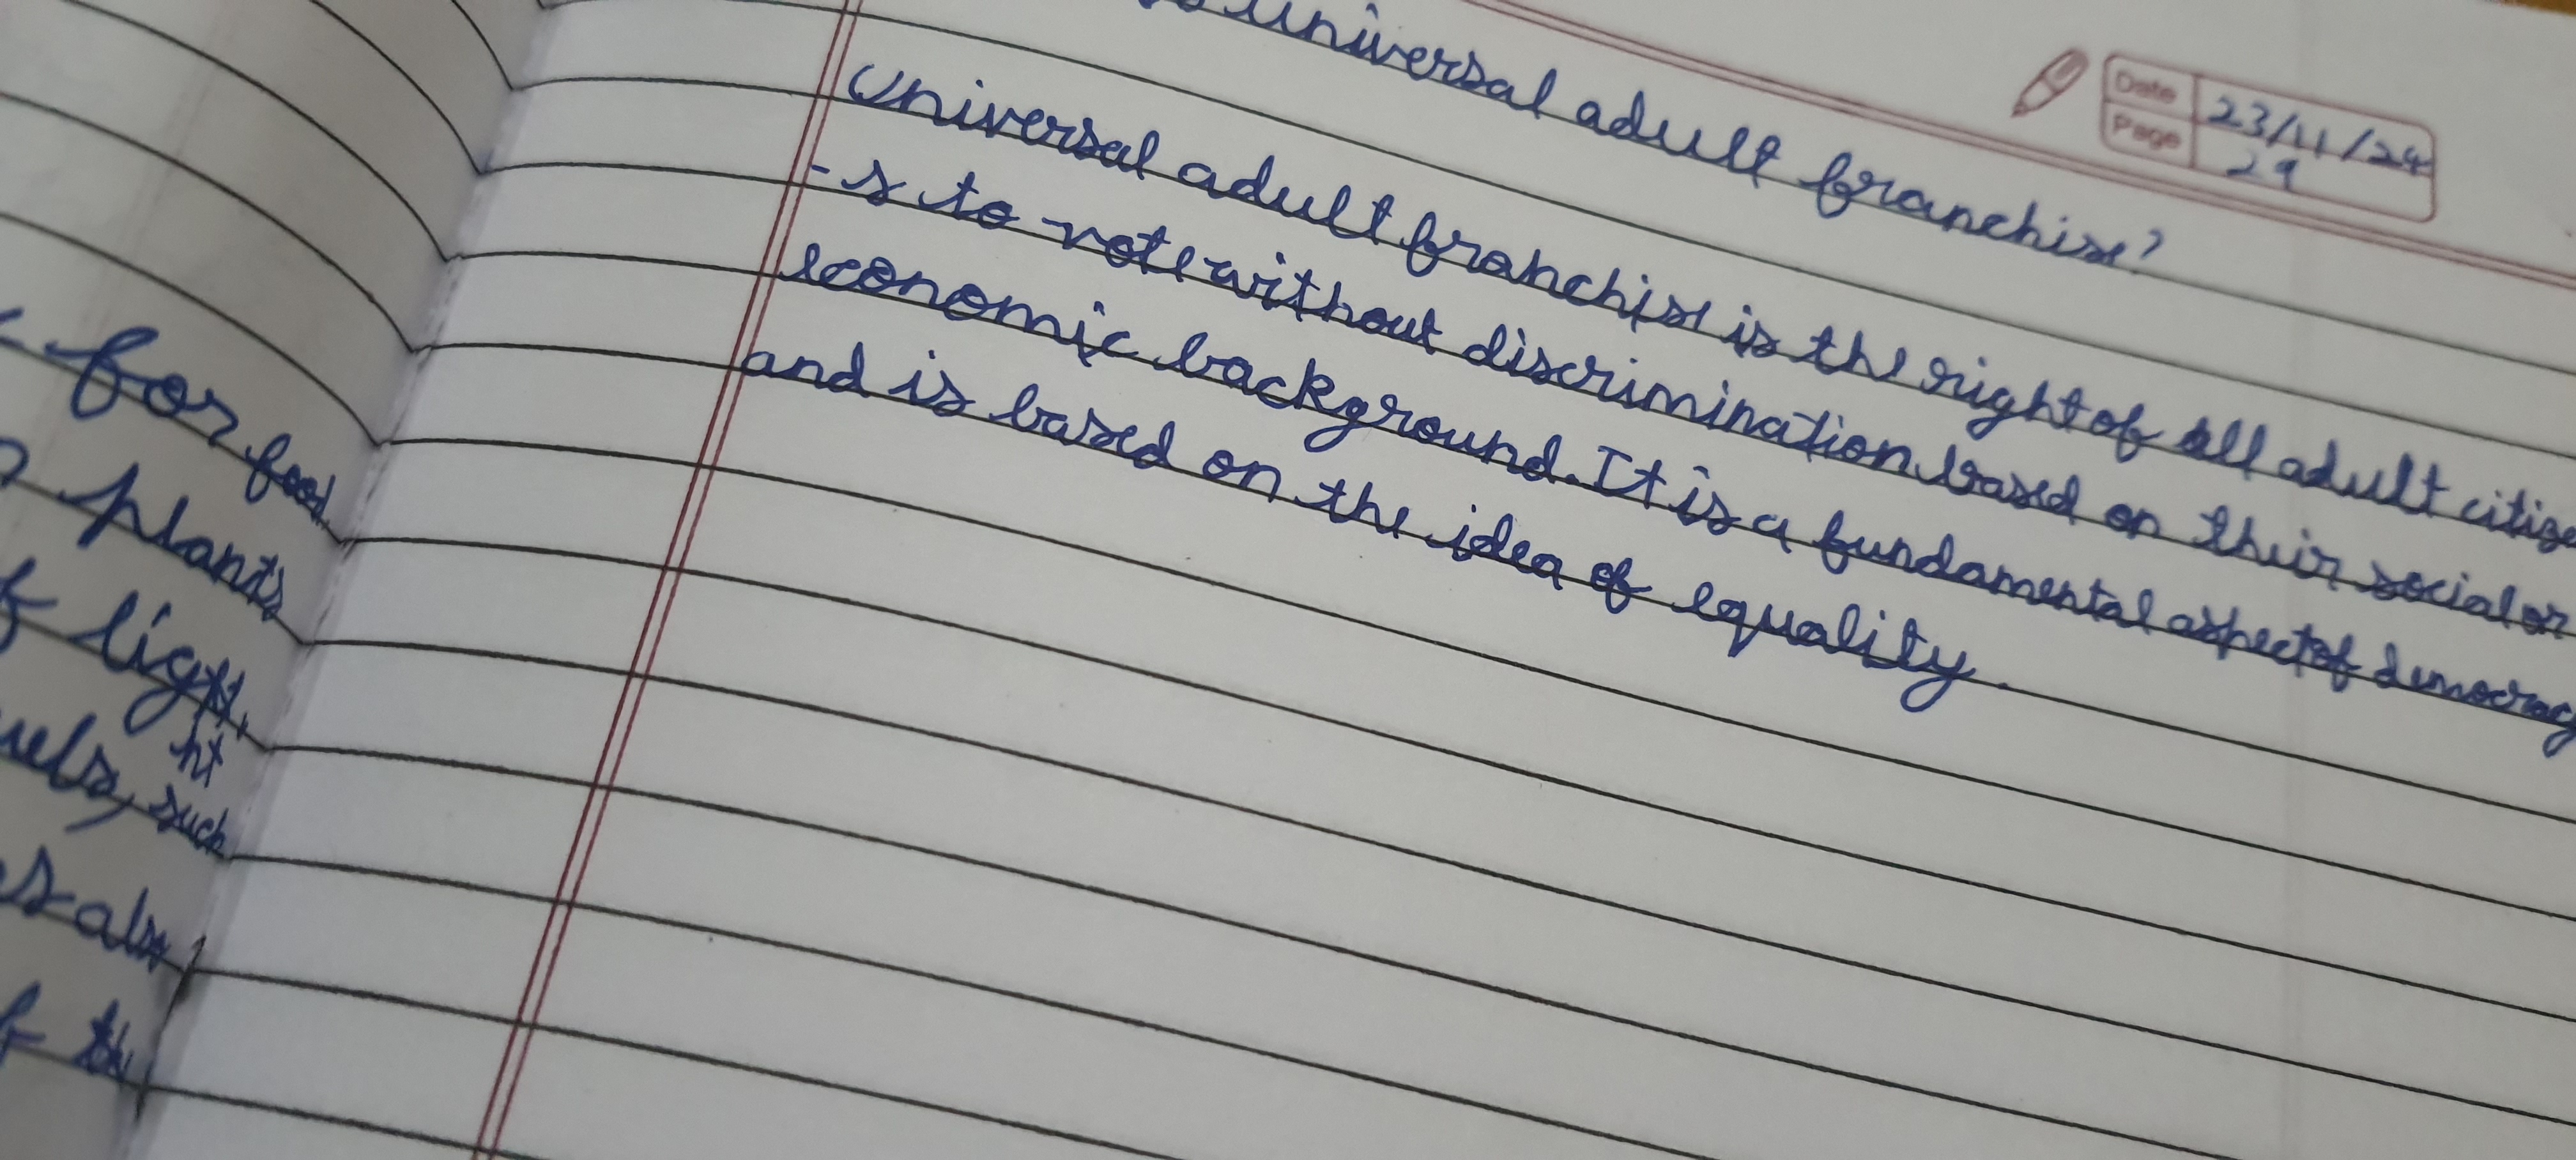 for food
plants
light,
ht
such
also
Date 23/11/24
Page 29
universal adult franchise?
Universal adult franchise is the right of all adult citize
-s to vote without discrimination based on their social or
economic background. It is a fundamental aspect of democracy
and is based on the idea of equality.